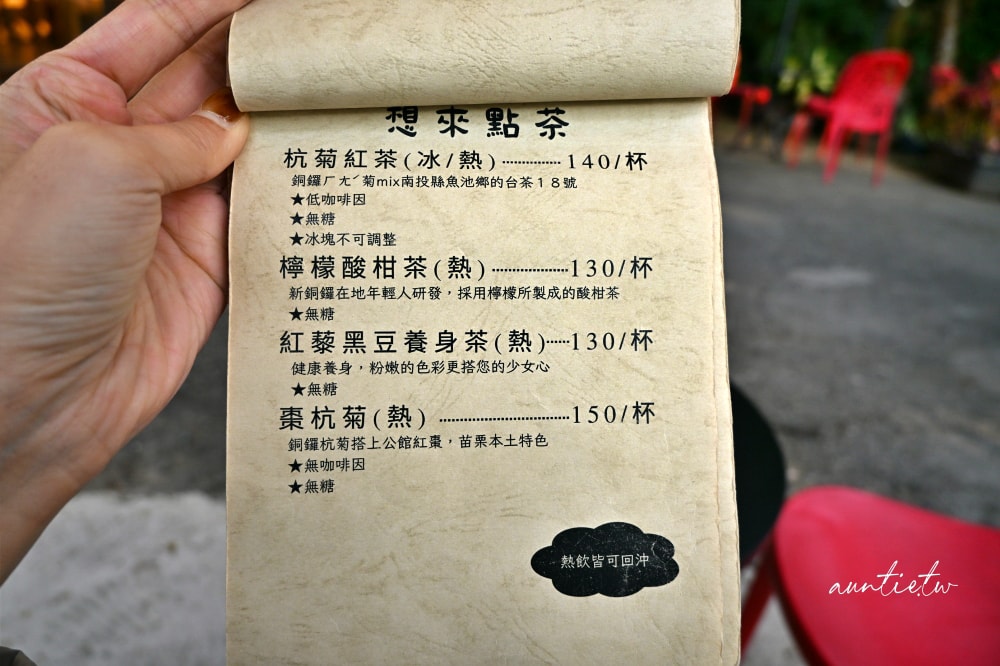 想來點茶
杭菊紅茶(冰/熱)................140/杯
銅鑼ㄏㄤˊ菊mix南投縣魚池鄉的台茶18號
★低咖啡因
★無糖
★冰塊不可調整
檸檬酸柑茶(熱)...................130/杯
新銅鑼在地年輕人研發，採用檸檬所製成的酸柑茶
★無糖
紅藜黑豆養身茶(熱)......130/杯
健康養身，粉嫩的色彩更搭您的少女心
★無糖
棗杭菊(熱) ................................150/杯
銅鑼杭菊搭上公館紅棗，苗栗本土特色
★無咖啡因
★無糖
熱飲皆可回沖
auntie.tw